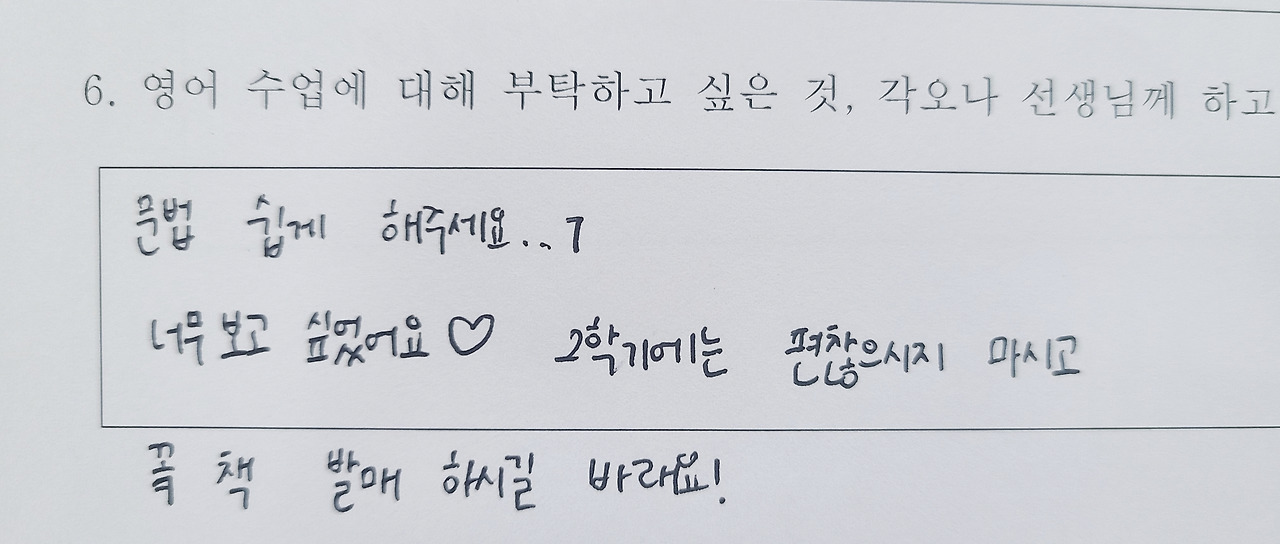 6. 영어 수업에 대해 부탁하고 싶은 것, 각오나 선생님께 하고
문법 쉽게 해주세요..ㄱ
너무 보고 싶었어요♡ 2학기에는 편찮으시지 마시고
꼭 책 발매 하시길 바래요!